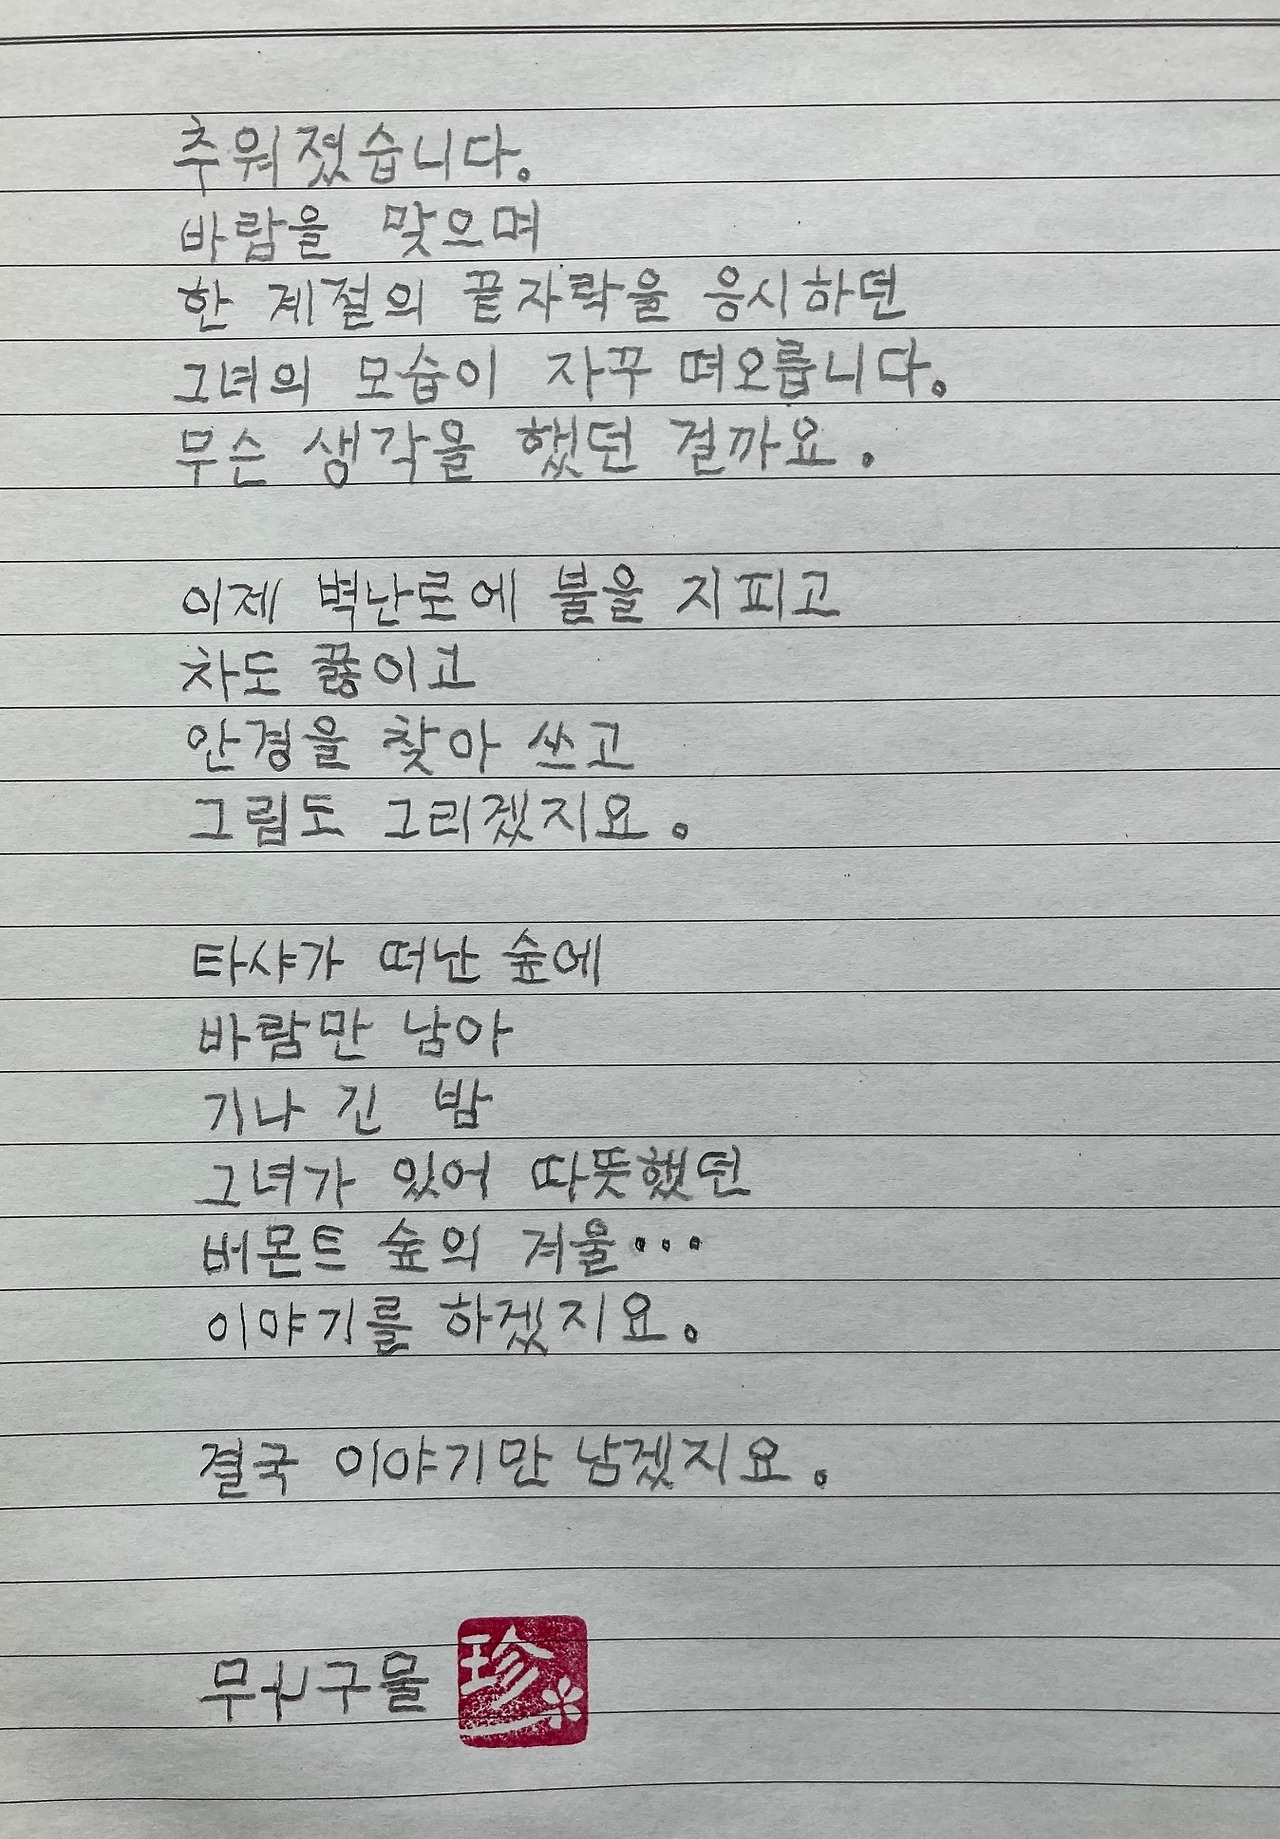 추워졌습니다.
바람을 맞으며
한 계절의 끝자락을 응시하던
그녀의 모습이 자꾸 떠오릅니다.
무슨 생각을 했던 걸까요.
이제 벽난로에 불을 지피고
차도 끓이고
안경을 찾아 쓰고
그림도 그리겠지요.
타샤가 떠난 숲에
바람만 남아
기나 긴 밤
그녀가 있어 따뜻했던
버몬트 숲의 겨울...
이야기를 하겠지요.
결국 이야기만 남겠지요.
구물
珍